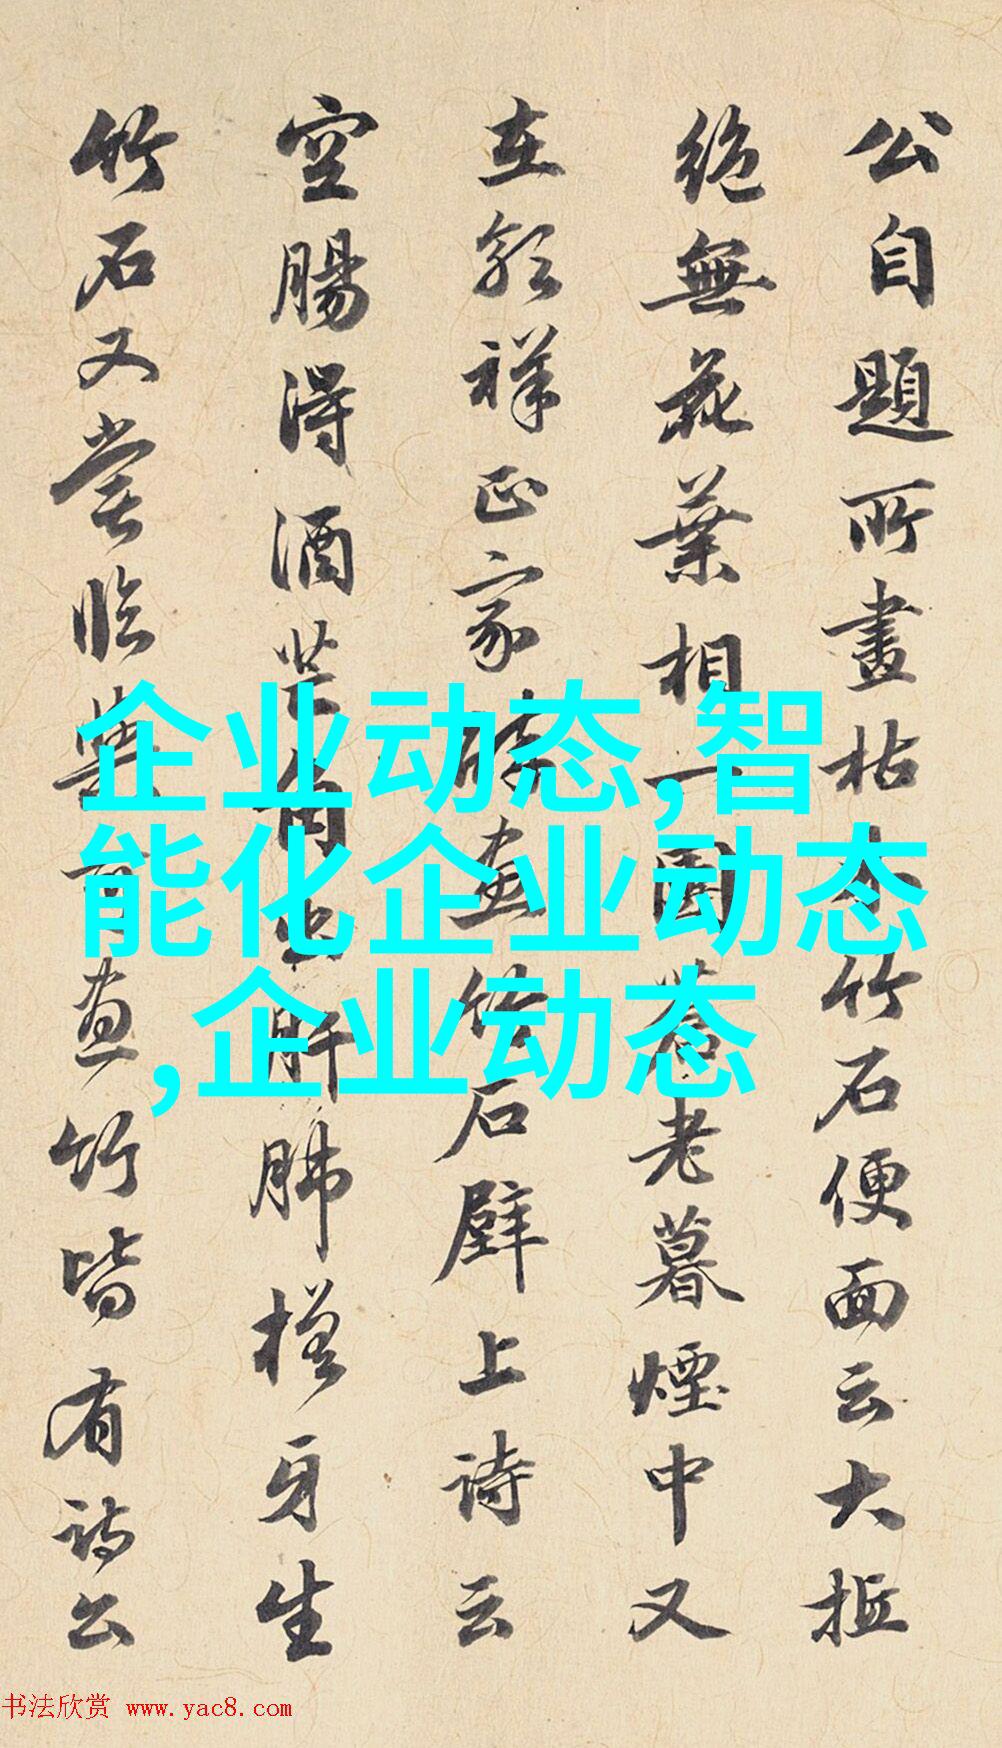 公自題所畫枯木竹石便面云大抵
絶無花葉相一園蒼老暮煙中又
在郭祥正家醉畫竹石壁上詩云
空腸得酒芒角出肝肺槎牙生
竹石又嘗臨與可畫竹皆有詩公
企业动态,智
能化企业动态
,企业动态
书法欣赏 www.yac8.com